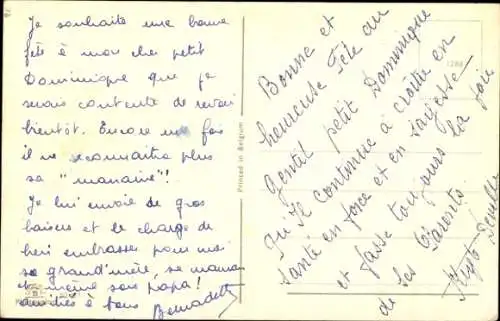 Je souhaite une bonne
fête à mon cher petit
Dominique que je
serais contente de revoir
bientôt. Encore une fois
il ne reconnaitra plus
sa "manaine"!
Je lui envoie de gros
baisers et le charge de
bien embrasser pour moi
sa grand'mère, sa maman
et même son papa!
amitiés à tous Bernadette
Printed in Belgium
Bonne et
heureuse Fête au
Gentil petit Dominique
Qu'Il continue à croître en
santé en force et en sagesse
et fasse toujours la joie
de ses Parents